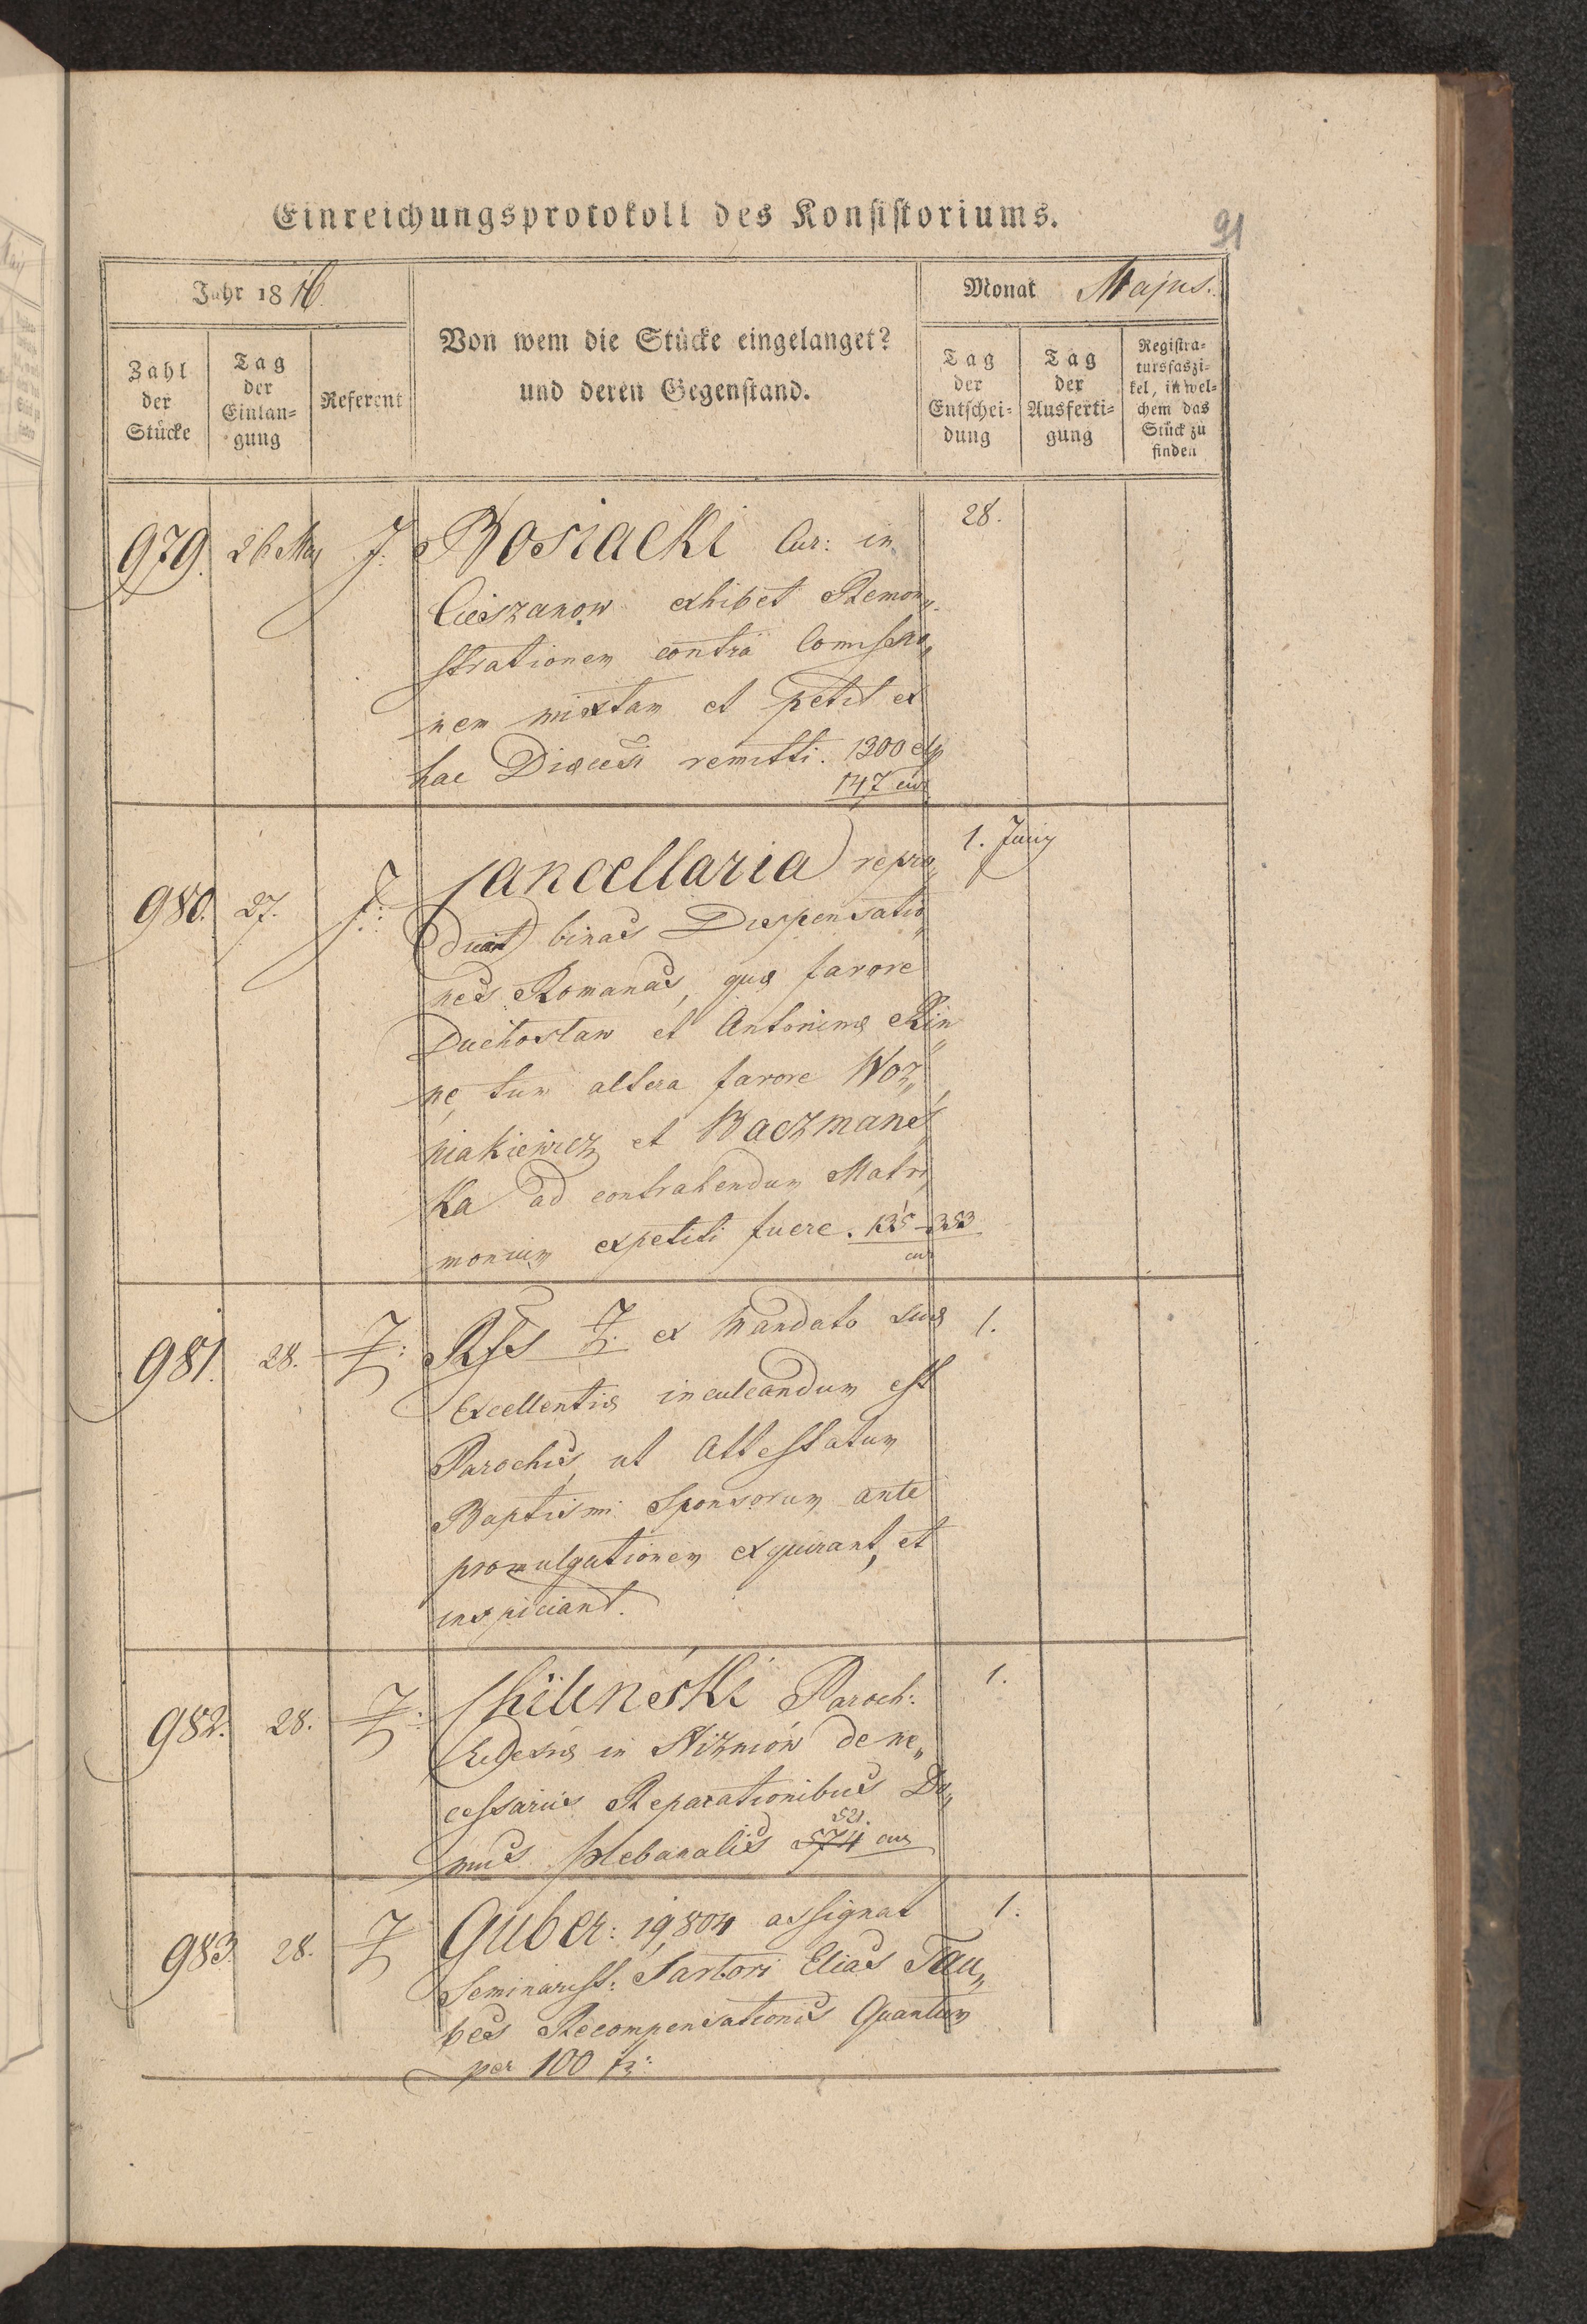 Einreichungsprotokoll des Konsistoriums.
91
Jahr 1816.
Monat Majus.
Zahl der Stücke
Tag der Einlan=gung
Referent
Von wem die Stücke eingelanget?
und deren Gegenstand.
Tag der Entschei=dung
Tag der Ausferti=gung
Registra=tursfaszi=kel, in wel=chem das Stück zu finden
979. 26 Maj J: Bosiacki Cur: in 28.
Cieszanow exhibet Remon„
strationem contra Comissio„
nem mixtam et petit ex
hac Dioecesi remitti. 1300
147
980. 27. J: Cancellaria repro„ 1. Juny
ducit binas Dispensatio„
nes Romanas, quæ favore
Duchoslaw et Antoninæ Rin„
ne, tum altera favore Woz„
niakiewicz et Baczmans„
ka ad contrahendum Matri„
monium expetiti fuere. 135 - 353
981. 28. Z: Rſſs Z. ex Mandato suæ 1.
Excellentiæ inculcandum est
Parochis, ut Attestatum
Baptismi Sponsorum ante
promulgationem exquirant, et
inspiciant.
982. 28. Z: Paroch: 1.
in Nizniów de ne„
cessariis Reparationibus Do„
521.
mus plebanalis 574
983. 28. Z Guber: 19,804 assignat 1.
Seminarist: Sartori Elias Tau„
bes Recompensationis Quantum
per 100 fr: